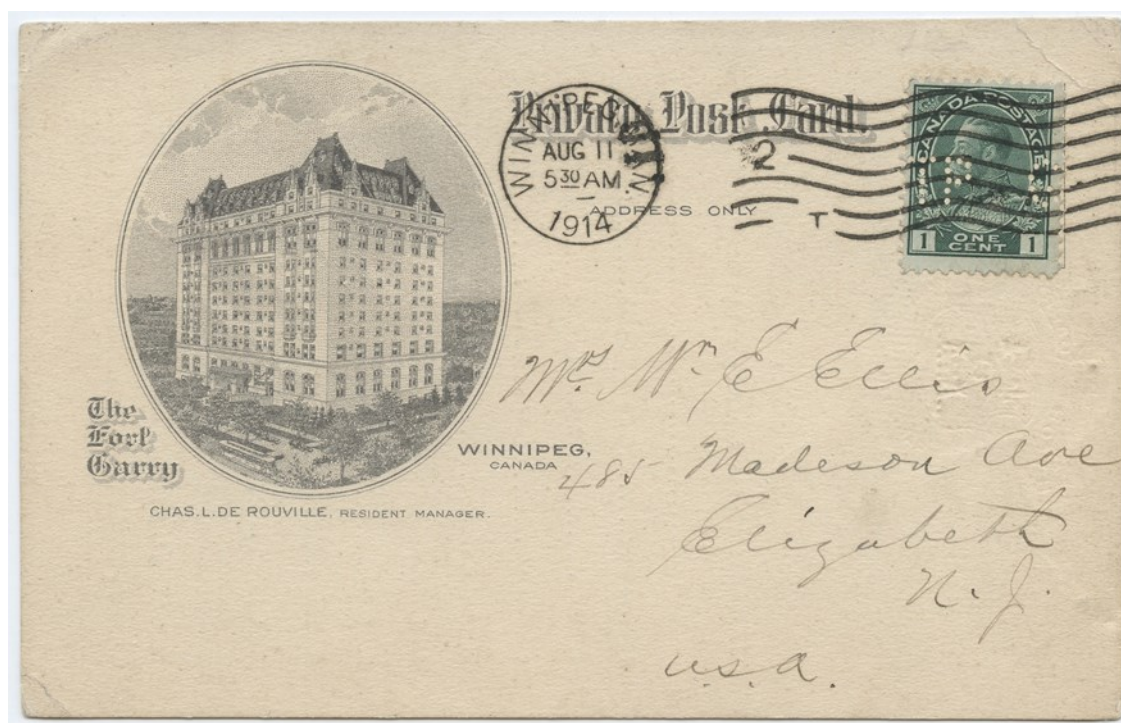 Private Post Card.
ADDRESS ONLY
WINNIPEG MAN.
AUG 11
5 30 AM
1914
2
T
CANADA POSTAGE
1 ONE CENT 1
The
Fort
Garry
WINNIPEG,
CANADA
CHAS. L. DE ROUVILLE, RESIDENT MANAGER.
Mrs. Wm E Ellis
485 Madeson Ave
Elizabeth
N. J.
U.S.A.